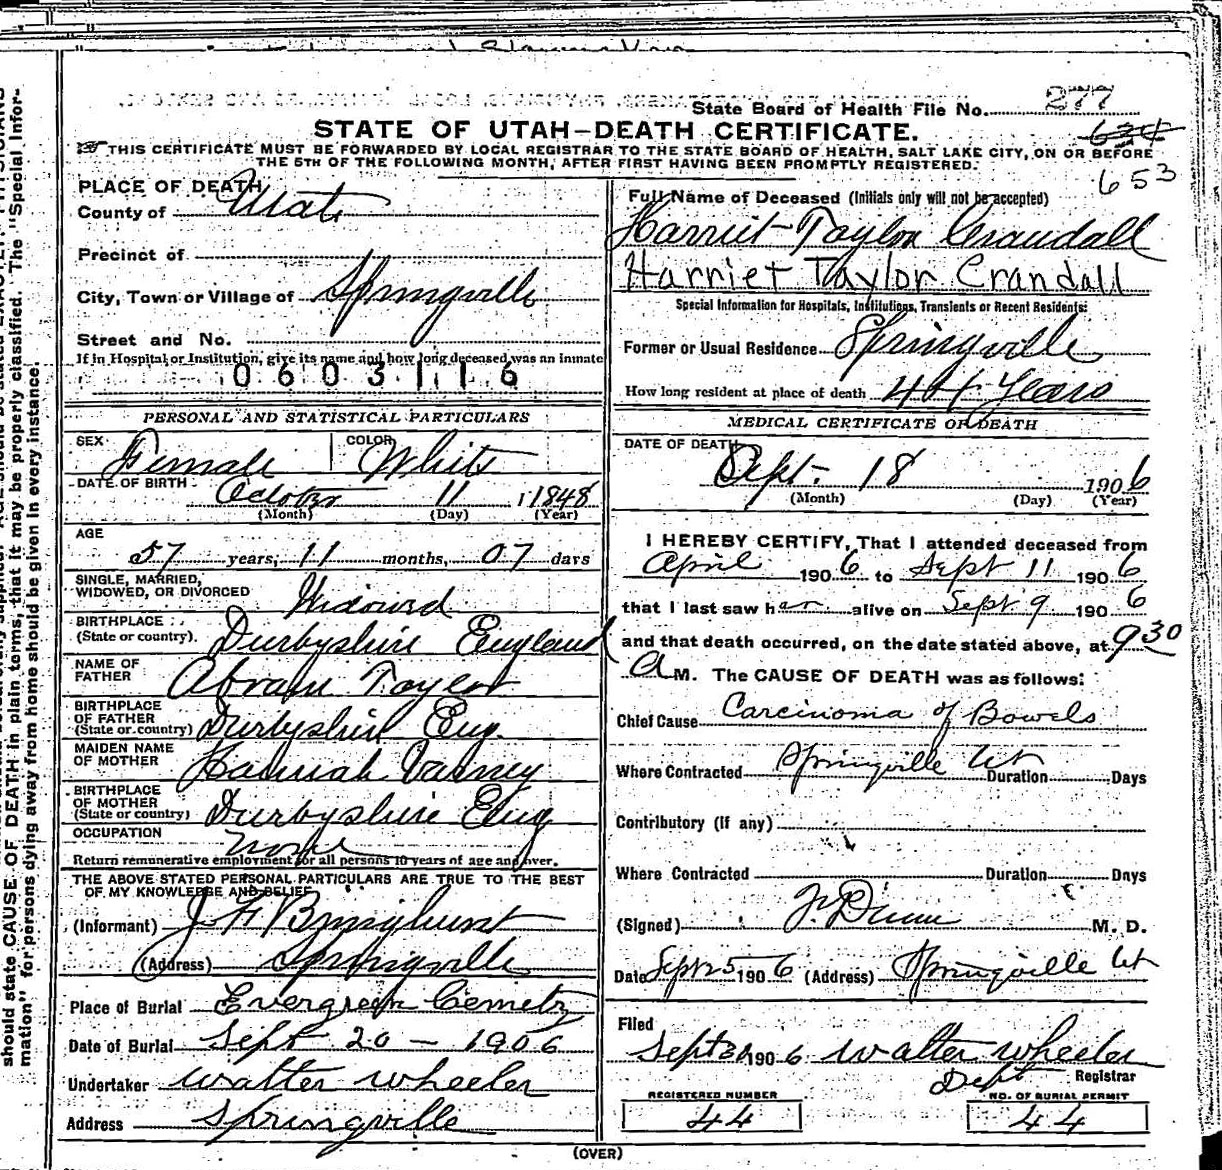 State Board of Health File No. 277
STATE OF UTAH—DEATH CERTIFICATE.
634
THIS CERTIFICATE MUST BE FORWARDED BY LOCAL REGISTRAR TO THE STATE BOARD OF HEALTH, SALT LAKE CITY, ON OR BEFORE
THE 5TH OF THE FOLLOWING MONTH, AFTER FIRST HAVING BEEN PROMPTLY REGISTERED.
653
PLACE OF DEATH
County of Utah
Precinct of
City, Town or Village of Springville
Street and No.
If in Hospital or Institution, give its name and how long deceased was an inmate
0603116
PERSONAL AND STATISTICAL PARTICULARS
SEX Female COLOR White
DATE OF BIRTH October 11 1848
(Month) (Day) (Year)
AGE
57 years, 11 months, 07 days
SINGLE, MARRIED,
WIDOWED, OR DIVORCED Widowed
BIRTHPLACE
(State or country). Durbyshire England
NAME OF
FATHER Abram Taylor
BIRTHPLACE
OF FATHER
(State or country) Durbyshire Eng.
MAIDEN NAME
OF MOTHER Hannah Varney
BIRTHPLACE
OF MOTHER
(State or country) Durbyshire Eng
OCCUPATION None
Return remunerative employment for all persons 10 years of age and over.
THE ABOVE STATED PERSONAL PARTICULARS ARE TRUE TO THE BEST
OF MY KNOWLEDGE AND BELIEF
(Informant) J F Bringhurst
(Address) Springville
Place of Burial Evergreen Cemetry
Date of Burial Sept 20 - 1906
Undertaker Walter Wheeler
Address Springville
Full Name of Deceased (Initials only will not be accepted)
Harriet Taylor Crandall
Harriet Taylor Crandall
Special Information for Hospitals, Institutions, Transients or Recent Residents:
Former or Usual Residence Springville
How long resident at place of death 44 Years
MEDICAL CERTIFICATE OF DEATH
DATE OF DEATH
Sept. 18 1906
(Month) (Day) (Year)
I HEREBY CERTIFY, That I attended deceased from
April 1906 to Sept 11 1906
that I last saw her alive on Sept 9 1906
and that death occurred, on the date stated above, at 9 30
A M. The CAUSE OF DEATH was as follows:
Chief Cause Carcinoma of Bowels
Where Contracted Springville Ut Duration Days
Contributory (if any)
Where Contracted Duration Days
(Signed) F. Dunn M. D.
Date Sept 25 1906 (Address) Springville Ut
Filed
Sept 1906 Walter Wheeler
Dept Registrar
REGISTERED NUMBER
44
NO. OF BURIAL PERMIT
44
(OVER)
should state CAUSE OF DEATH in plain terms, that it may be properly classified. The "Special Infor-
mation" for persons dying away from home should be given in every instance.